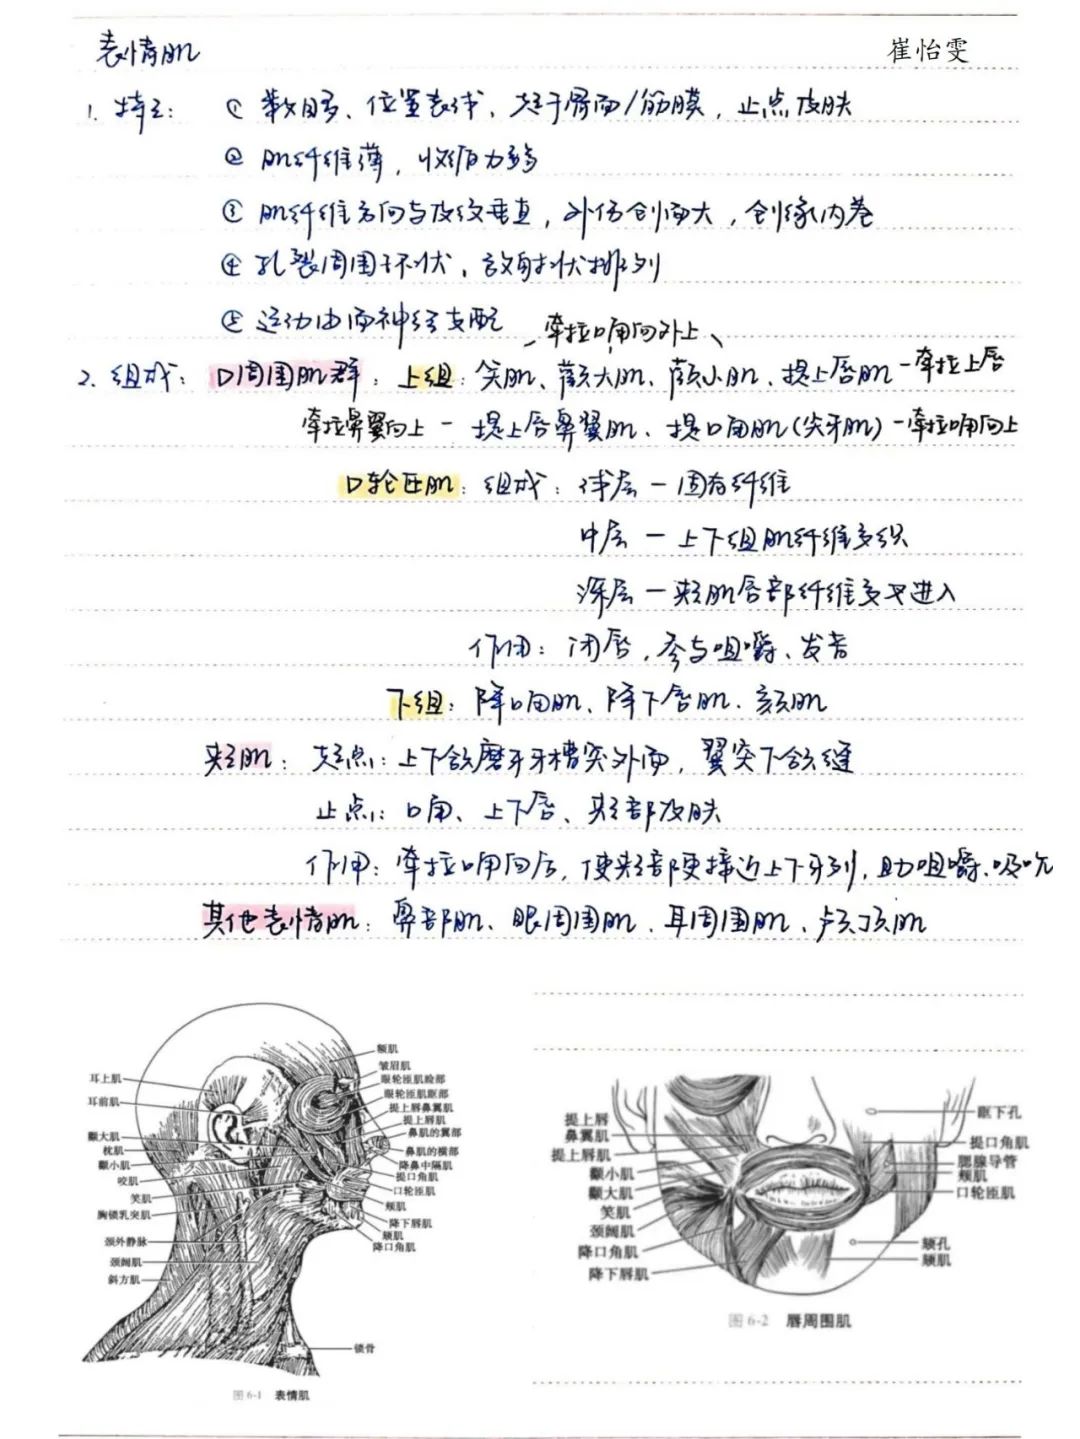 表情肌
崔怡雯
1. 特点: ① 数目多、位置表浅、起于骨面/筋膜，止点皮肤
② 肌纤维薄，收缩力弱
③ 肌纤维方向与皮纹垂直，外伤创面大，创缘内卷
④ 孔裂周围环状、放射状排列
⑤ 运动由面神经支配
牵拉口角向外上
2. 组成: 口周围肌群: 上组: 笑肌、颧大肌、颧小肌、提上唇肌-牵拉上唇
牵拉鼻翼向上 - 提上唇鼻翼肌、提口角肌(尖牙肌)-牵拉口角向上
口轮匝肌: 组成: 浅层 - 固有纤维
中层 - 上下组肌纤维交织
深层 - 颊肌唇部纤维交叉进入
作用: 闭唇，参与咀嚼、发音
下组: 降口角肌、降下唇肌、颏肌
颊肌: 起点: 上下颌磨牙牙槽突外面，翼突下颌缝
止点: 口角、上下唇、颊部皮肤
作用: 牵拉口角向后，使颊部更接近上下牙列，助咀嚼、吸吮
其他表情肌: 鼻部肌、眼周围肌、耳周围肌、颅顶肌
额肌
皱眉肌
眼轮匝肌睑部
眼轮匝肌眶部
提上唇鼻翼肌
提上唇肌
鼻肌的翼部
鼻肌的横部
降鼻中隔肌
提口角肌
口轮匝肌
颊肌
降下唇肌
颏肌
降口角肌
耳上肌
耳前肌
颧大肌
枕肌
颧小肌
咬肌
笑肌
胸锁乳突肌
颈外静脉
颈阔肌
斜方肌
锁骨
图 6-1 表情肌
提上唇
鼻翼肌
提上唇肌
颧小肌
颧大肌
笑肌
颈阔肌
降口角肌
降下唇肌
眶下孔
提口角肌
腮腺导管
颊肌
口轮匝肌
颏孔
颏肌
图 6-2 唇周围肌